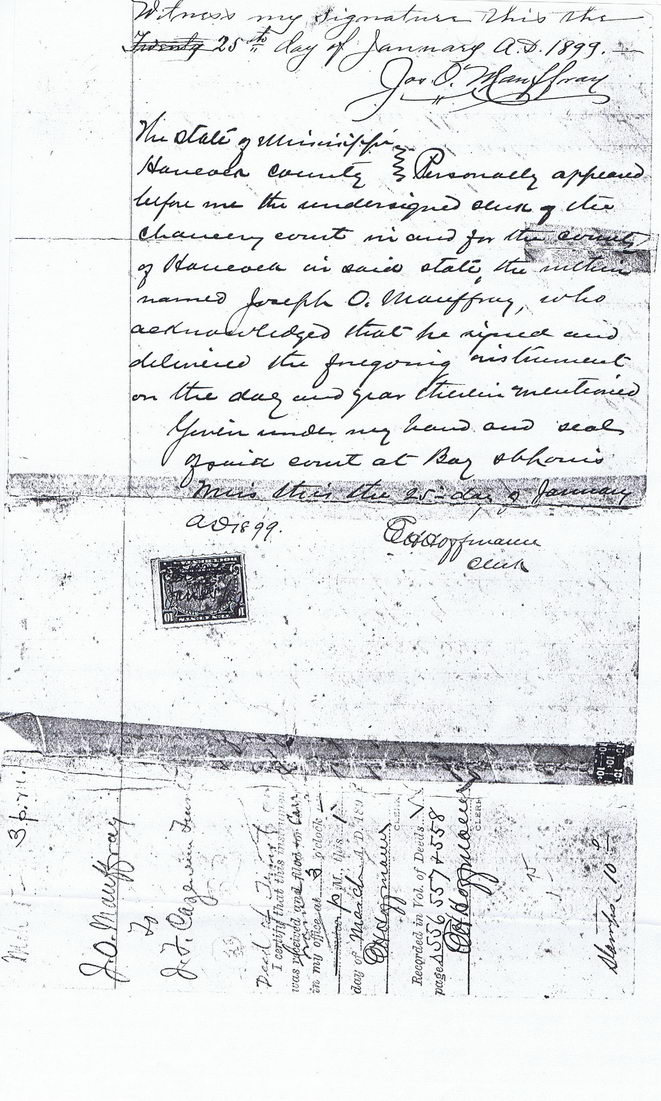 Witness my signature this the
Twenty 25th day of January A.D. 1899.
Jos O. Mauffray
The state of Mississippi
Hancock county } Personally appeared
before me the undersigned clerk of the
chancery court in and for the county
of Hancock in said state, the within
named Joseph O. Mauffray, who
acknowledged that he signed and
delivered the foregoing instrument
on the day and year therein mentioned
Given under my hand and seal
of said court at Bay St Louis
Miss this the 25 day of January
AD 1899.
E H Hoffmann
Clerk
10 10
3 p.m.
J.O. Mauffray
To
J.F. Cage
Deed of Trust
I certify that this instrument
was received and filed for
in my office at 3 o'clock
P M. this 1
day of March A.D. 189
E H Hoffmann
CLERK
Recorded in Vol. of Deeds V
pages 556 557 & 558
E H Hoffmann
CLERK
Stamps 10